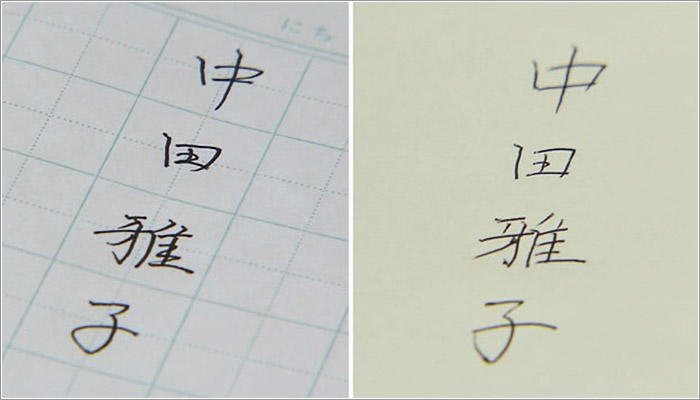 にち
中田雅子
中田雅子